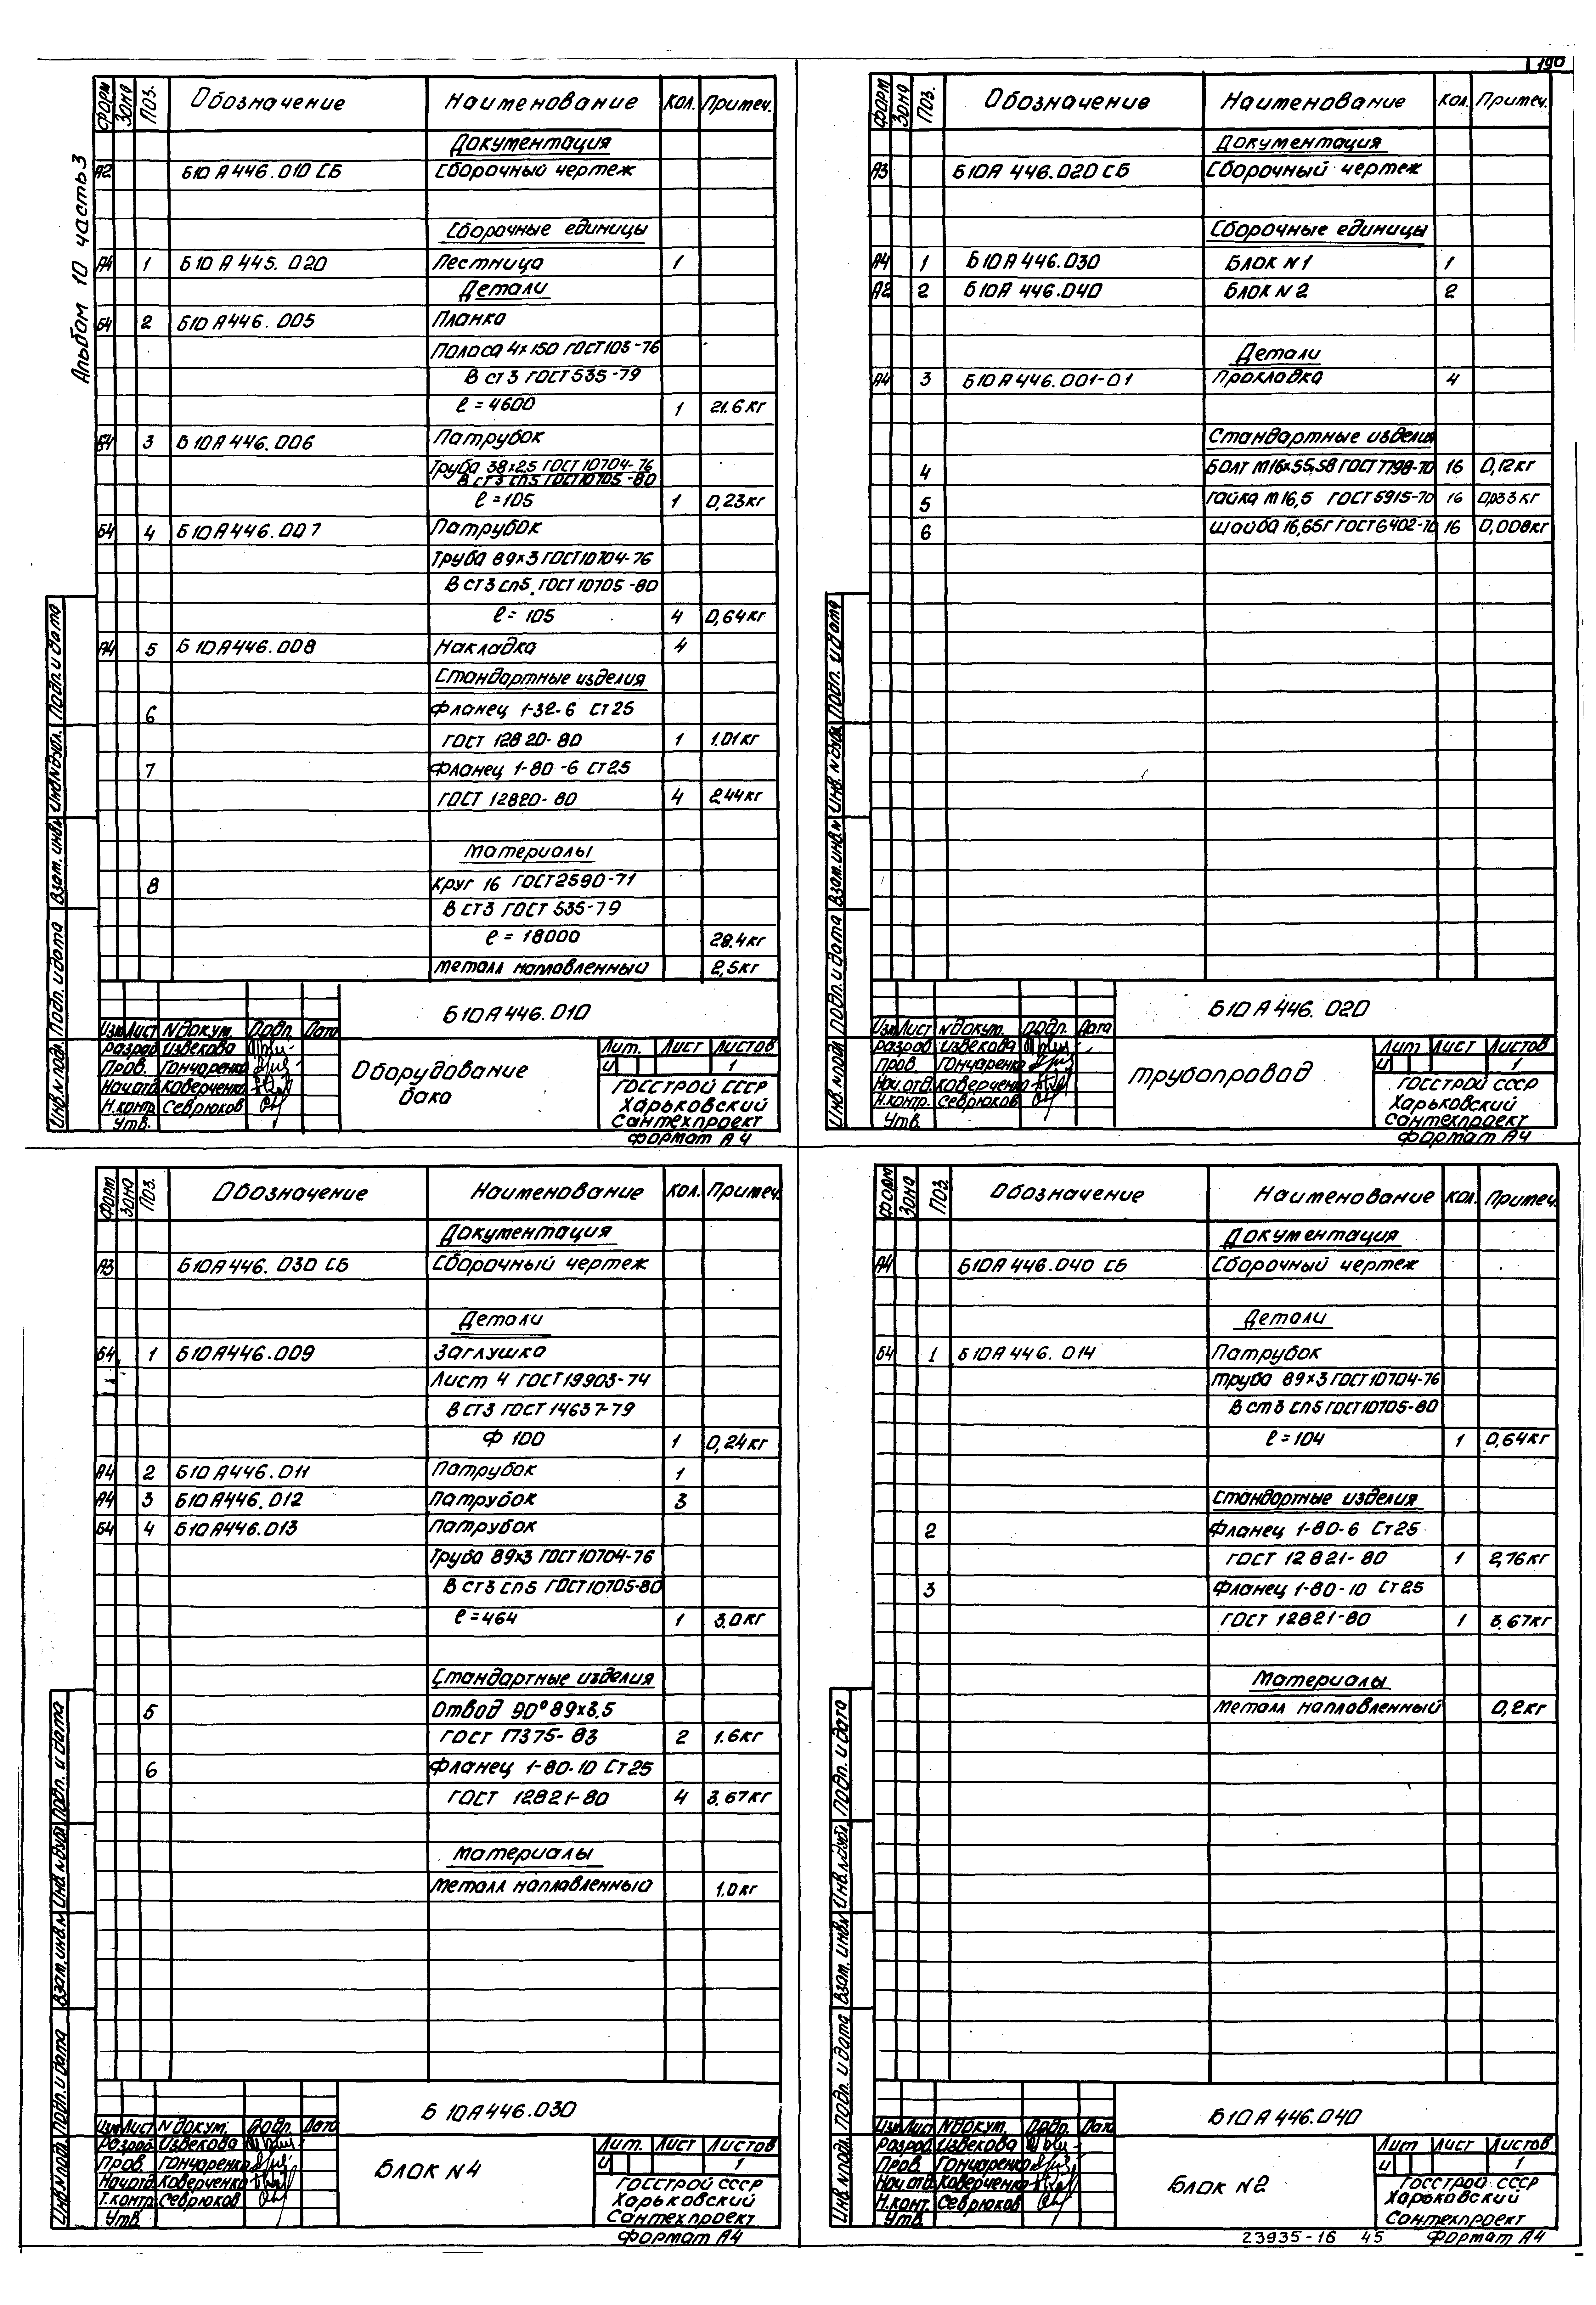 190
Альбом 10 часть 3
Форм Зона Поз. Обозначение Наименование Кол. Примеч.
Документация
А2 Б10А446.010 СБ Сборочный чертеж
Сборочные единицы
А4 1 Б10А445.020 Лестница 1
Детали
Б4 2 Б10А446.005 Планка
Полоса 4х150 ГОСТ103-76
В ст3 ГОСТ535-79
ℓ=4600 1 21.6кг
Б4 3 Б10А446.006 Патрубок
Труба 38х2.5 ГОСТ10704-76
В ст3 сп5 ГОСТ10705-80
ℓ=105 1 0,23кг
Б4 4 Б10А446.007 Патрубок
Труба 89х3 ГОСТ10704-76
В ст3 сп5. ГОСТ10705-80
ℓ=105 4 0,64кг
А4 5 Б10А446.008 Накладка 4
Стандартные изделия
6 Фланец 1-32-6 Ст25
ГОСТ 12820-80 1 1.01кг
7 Фланец 1-80-6 Ст25
ГОСТ 12820-80 4 2.44кг
Материалы
8 Круг 16 ГОСТ2590-71
В ст3 ГОСТ 535-79
ℓ=18000 28.4кг
Металл наплавленный 2,5кг
Подп. и дата
Инв.№дубл.
Взам. инв.№
Подп. и дата
Инв.№подл.
Б10А446.010
Изм Лист №докум. Подп. Дата
Разраб Извекова
Пров. Гончаренко
Нач.отд Коверченко
Н.контр. Севрюков
Утв.
Оборудование
бака
Лит. Лист Листов
И 1
ГОССТРОЙ СССР
Харьковский
Сантехпроект
Формат А4
Форм Зона Поз. Обозначение Наименование Кол. Примеч.
Документация
А3 Б10А446.020 СБ Сборочный чертеж
Сборочные единицы
А4 1 Б10А446.030 Блок №1 1
А2 2 Б10А446.040 Блок №2 2
Детали
А4 3 Б10А446.001-01 Прокладка 4
Стандартные изделия
4 Болт М16х55,58 ГОСТ7798-70 16 0,12кг
5 Гайка М16,5 ГОСТ5915-70 16 0,033кг
6 Шайба 16,65Г ГОСТ6402-70 16 0,008кг
Подп. и дата
Инв. №дубл.
Взам.инв.№
Подп. и дата
Инв.№подл.
Б10А446.020
Изм Лист №докум. Подп. Дата
Разраб Извекова
Пров. Гончаренко
Нач.отд. Коверченко
Н.контр. Севрюков
Утв.
Трубопровод
Лит Лист Листов
И 1
ГОССТРОЙ СССР
Харьковский
Сантехпроект
Формат А4
Форм Зона Поз. Обозначение Наименование Кол. Примеч.
Документация
А3 Б10А446.030 СБ Сборочный чертеж
Детали
Б4 1 Б10А446.009 Заглушка
Лист 4 ГОСТ19903-74
В ст3 ГОСТ 14637-79
Ф 100 1 0,24кг
А4 2 Б10А446.011 Патрубок 1
А4 3 Б10А446.012 Патрубок 3
Б4 4 Б10А446.013 Патрубок
Труба 89х3 ГОСТ10704-76
В ст3 сп5 ГОСТ10705-80
ℓ=464 1 3.0кг
Стандартные изделия
5 Отвод 90°89х3,5
ГОСТ 17375-83 2 1.6кг
6 Фланец 1-80-10 Ст25
ГОСТ 12821-80 4 3.67кг
Материалы
Металл наплавленный 1.0кг
Подп. и дата
Инв.№дубл
Взам.инв.№
Подп. и дата
Инв.№подл.
Б10А446.030
Изм Лист №докум. Подп. Дата
Разраб Извекова
Пров. Гончаренко
Нач.отд Коверченко
Т.контр Севрюков
Утв
Блок №4
Лит. Лист Листов
И 1
ГОССТРОЙ СССР
Харьковский
Сантехпроект
Формат А4
Форм Зона Поз. Обозначение Наименование Кол. Примеч.
Документация
А4 Б10А446.040 СБ Сборочный чертеж
Детали
Б4 1 Б10А446.014 Патрубок
Труба 89х3 ГОСТ10704-76
В ст3 сп5 ГОСТ10705-80
ℓ=104 1 0,64кг
Стандартные изделия
2 Фланец 1-80-6 Ст25
ГОСТ 12821-80 1 2,76кг
3 Фланец 1-80-10 Ст25
ГОСТ 12821-80 1 3.67кг
Материалы
Металл наплавленный 0,2кг
Подп. и дата
Инв.№дубл.
Взам. инв.№
Подп. и дата
Инв.№подл.
Б10А446.040
Изм Лист №докум. Подп. Дата
Разраб. Извекова
Пров. Гончаренко
Нач.отд. Коверченко
Н.конт. Севрюков
Утв.
Блок №2
Лит Лист Листов
И 1
ГОССТРОЙ СССР
Харьковский
Сантехпроект
23935-16 45 Формат А4